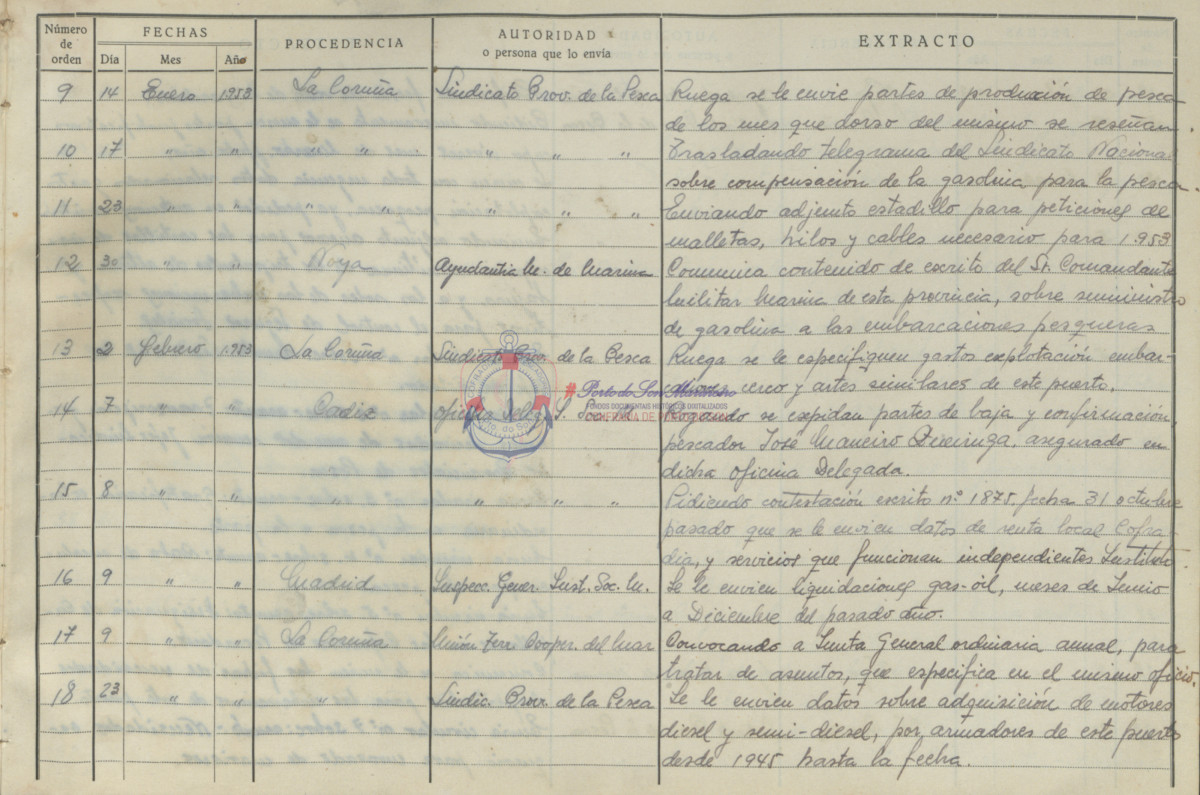 Número de orden FECHAS Día Mes Año PROCEDENCIA AUTORIDAD o persona que lo envía EXTRACTO
9 14 Enero 1953 La Coruña Sindicato Prov. de la Pesca Ruega se le envie partes de producción de pesca
de los mes que dorso del mismo se reseñan.
10 17 " " " " " " " Trasladando telegrama del Sindicato Nacional
sobre compensación de la gasolina para la pesca.
11 23 " " " " " " " Enviando adjunto estadillo para peticiones de
malletas, hilos y cables necesario para 1953
12 30 " " Noya Ayudantia M. de Marina Comunica contenido de escrito del Sr. Comandante
Militar Marina de esta provincia, sobre suministro
de gasolina a las embarcaciones pesqueras
13 2 Febrero 1953 La Coruña Sindicato Prov. de la Pesca Ruega se le especifiquen gastos explotación embar-
caciones cerco y artes similares de este puerto.
14 7 " " Cadiz oficina Deleg. I. Soc. M. Rogando se expidan partes de baja y confirmación,
pescador José Maneiro, asegurado en
dicha oficina Delegada.
15 8 " " " " " " Pidiendo contestación escrito nº 1875 fecha 31 octubre
pasado que se le envien datos de renta local Cofra-
dia, y servicios que funcionan independientes Instituto
16 9 " " Madrid Inspecc. Gener. Inst. Soc. M. Se le envien liquidaciones gas-oil, meses de Junio
a Diciembre del pasado año.
17 9 " " La Coruña Unión Terr. Cooper. del Mar Convocando a Junta General ordinaria annual, para
tratar de asuntos, que especifica en el mismo oficio.
18 23 " " " " Sindic. Prov. de la Pesca Se le envien datos sobre adquisición de motores
diesel y semi-diesel, por armadores de este puerto
desde 1945 hasta la fecha.
Porto do Son
FONDOS DOCUMENTAIS HISTÓRICOS DIGITALIZADOS